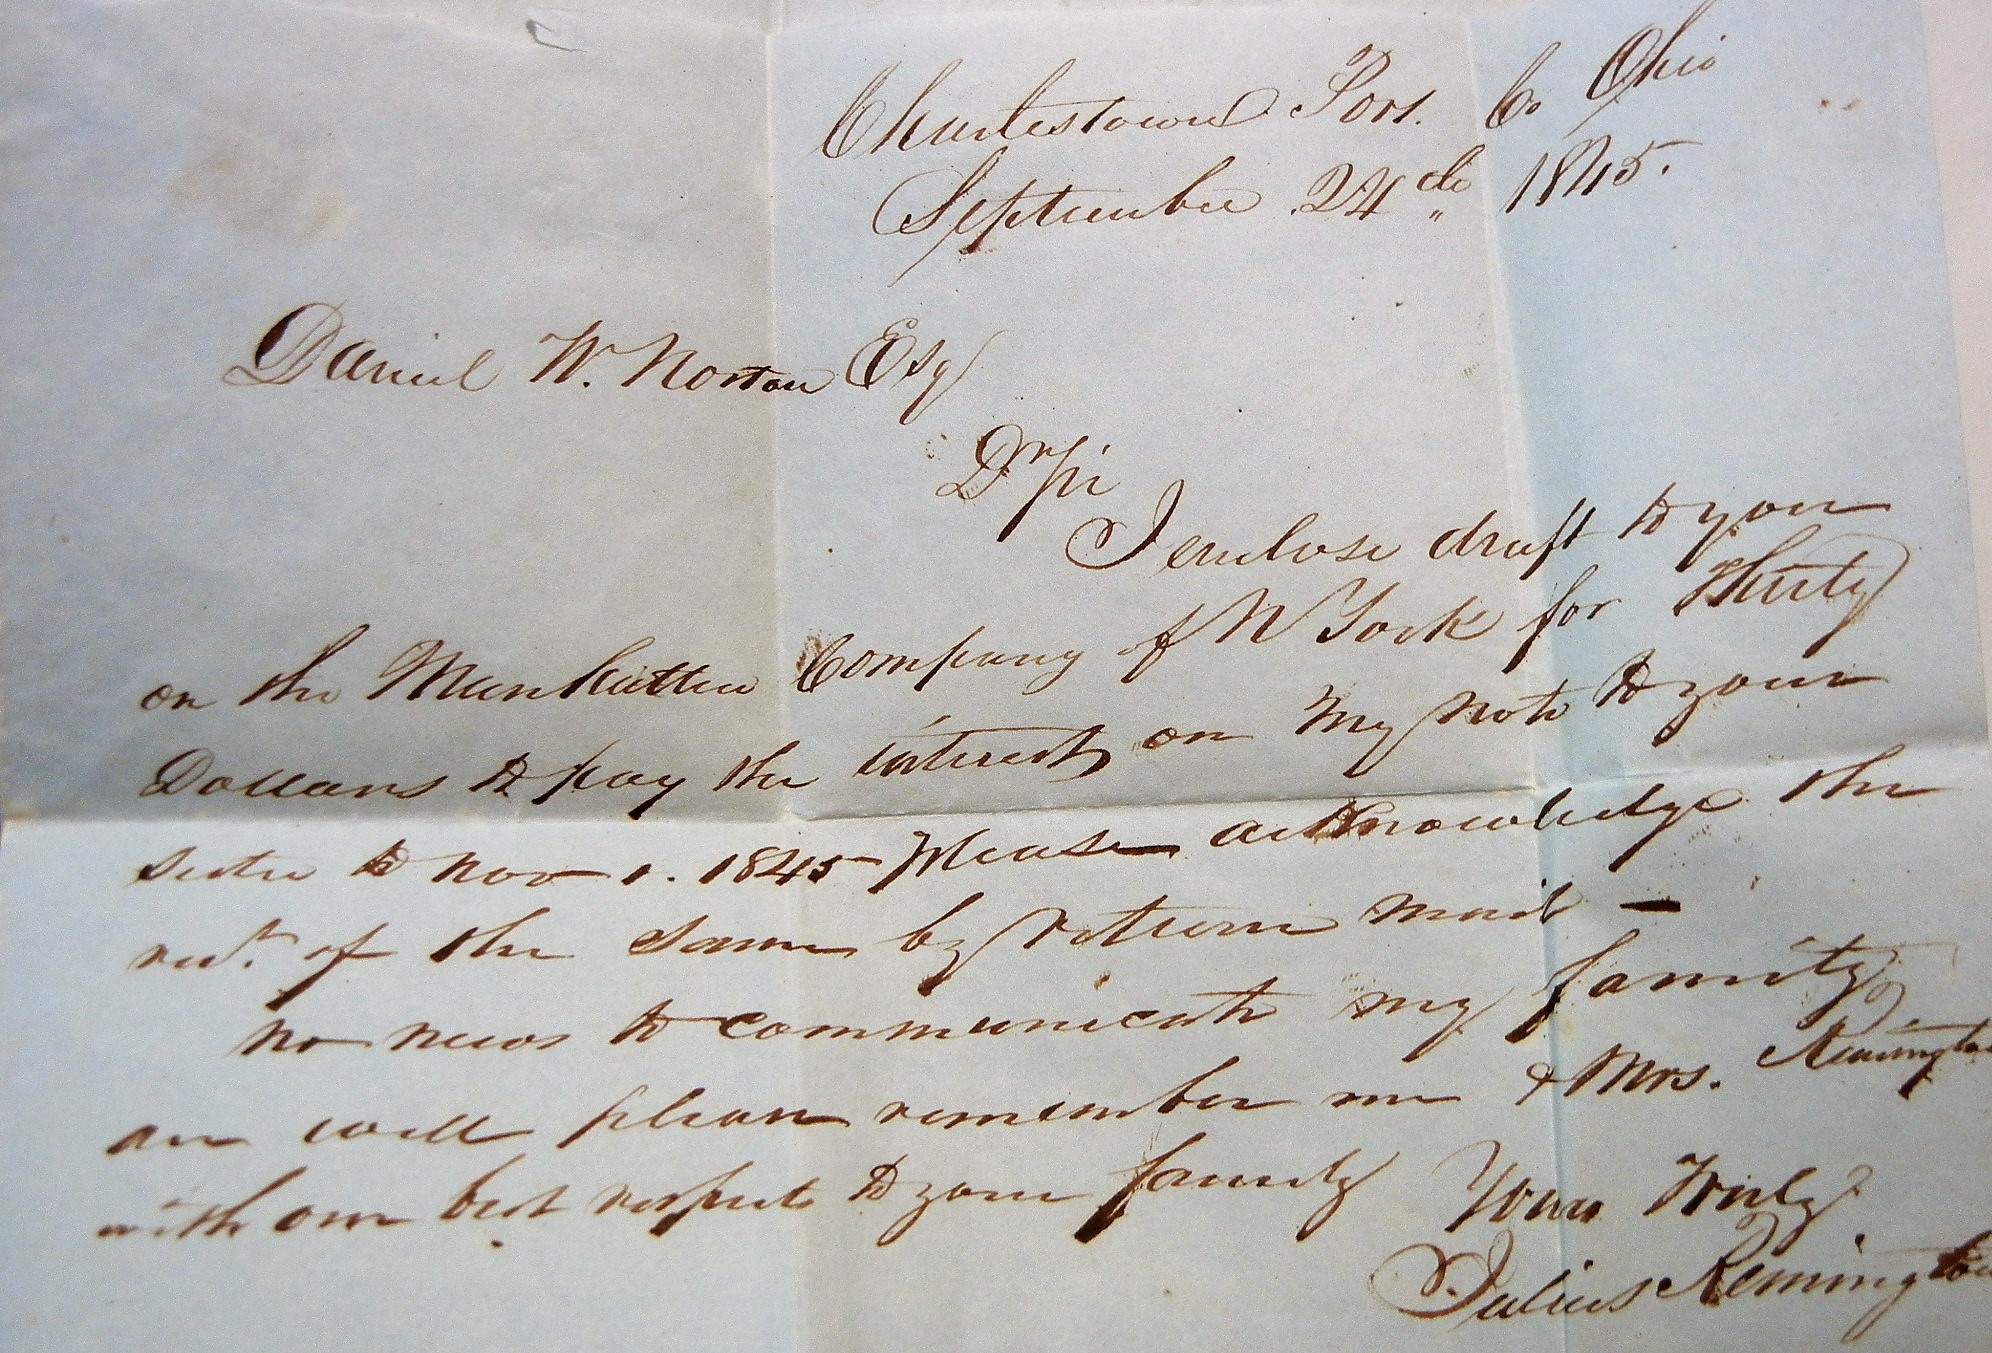 Charlestown Port. Co Ohio
September 24th 1845.
Daniel W. Norton Esq
Dr Sir
I enclose draft to you
on the Manhatten Company of N York for Thirty
Dollars to pay the interest on my note to your
sister to Nov 1. 1845 Please acknowledge the
rect. of the same by return mail —
no news to communicate my family
are well please remember me & Mrs. Remington
with our best respects to your family Yours Truly
Julius Remington